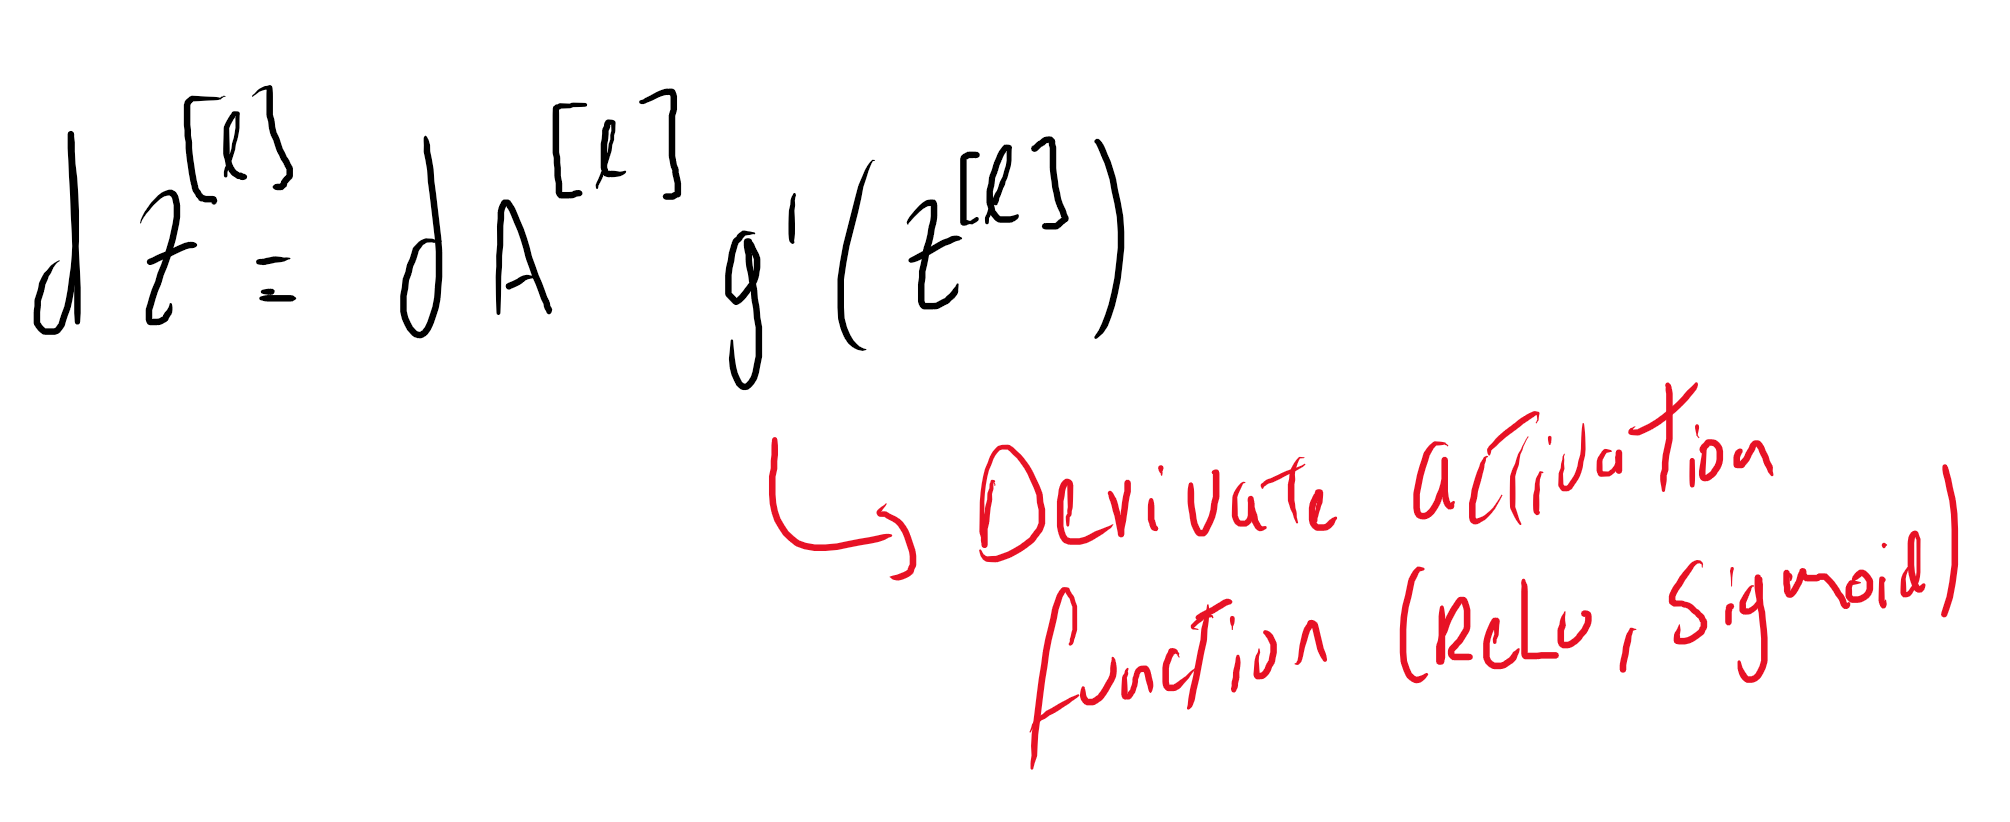 dZ^[l] = dA^[l] g'(Z^[l])
Derivate activation
function (ReLu, Sigmoid)